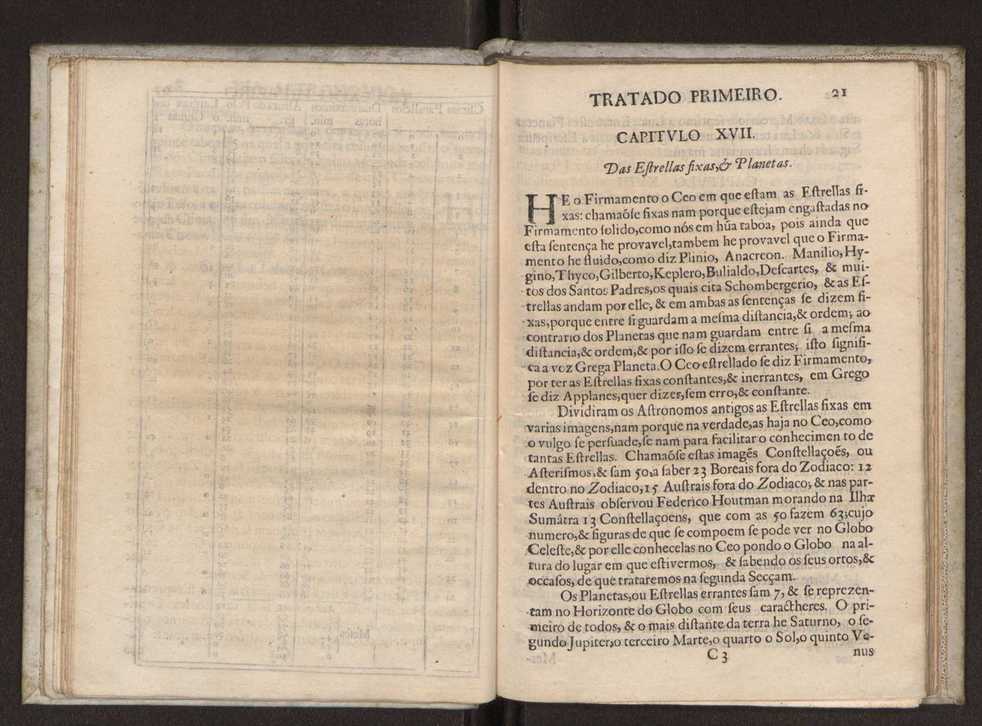 TRATADO PRIMEIRO. 21
CAPITVLO XVII.
Das Eſtrellas fixas,& Planetas.
HE o Firmamento o Ceo em que eſtam as Eſtrellas fi-
xas: chamaõſe fixas nam porque eſtejam engaſtadas no
Firmamento ſolido,como nós em hũa taboa, pois ainda que
eſta ſentença he provavel,tambem he provavel que o Firma-
mento he fluido,como diz Plinio, Anacreon. Manilio,Hy-
gino,Thyco,Gilberto,Keplero,Bulialdo,Deſcartes, & mui-
tos dos Santos Padres,os quais cita Schombergerio, & as Eſ-
trellas andam por elle, & em ambas as ſentenças ſe dizem fi-
xas,porque entre ſi guardam a meſma diſtancia,& ordem; ao
contrario dos Planetas que nam guardam entre ſi a meſma
diſtancia,& ordem,& por iſſo ſe dizem errantes; iſto ſignifi-
ca a voz Grega Planeta.O Ceo eſtrellado ſe diz Firmamento,
por ter as Eſtrellas fixas conſtantes,& inerrantes, em Grego
ſe diz Applanes,quer dizer,ſem erro,& conſtante.
Dividiram os Aſtronomos antigos as Eſtrellas fixas em
varias imagens,nam porque na verdade,as haja no Ceo,como
o vulgo ſe perſuade,ſe nam para facilitar o conhecimen to de
tantas Eſtrellas. Chamaõſe eſtas imagẽs Conſtellaçoẽs, ou
Aſteriſmos,& ſam 50,a ſaber 23 Boreais fora do Zodiaco: 12
dentro no Zodiaco,15 Auſtrais fora do Zodiaco; & nas par-
tes Auſtrais obſervou Federico Houtman morando na Ilha
Sumátra 13 Conſtellaçoens, que com as 50 fazem 63;cujo
numero,& figuras de que ſe compoem ſe pode ver no Globo
Celeſte,& por elle conhecelas no Ceo pondo o Globo na al-
tura do lugar em que eſtivermos, & ſabendo os ſeus ortos,&
occaſos, de que trataremos na ſegunda Secçam.
Os Planetas,ou Eſtrellas errantes ſam 7, & ſe reprezen-
tam no Horizonte do Globo com ſeus caractheres. O pri-
meiro de todos, & o mais diſtante da terra he Saturno, o ſe-
gundo Jupiter,o terceiro Marte,o quarto o Sol,o quinto Ve-
C 3 nus